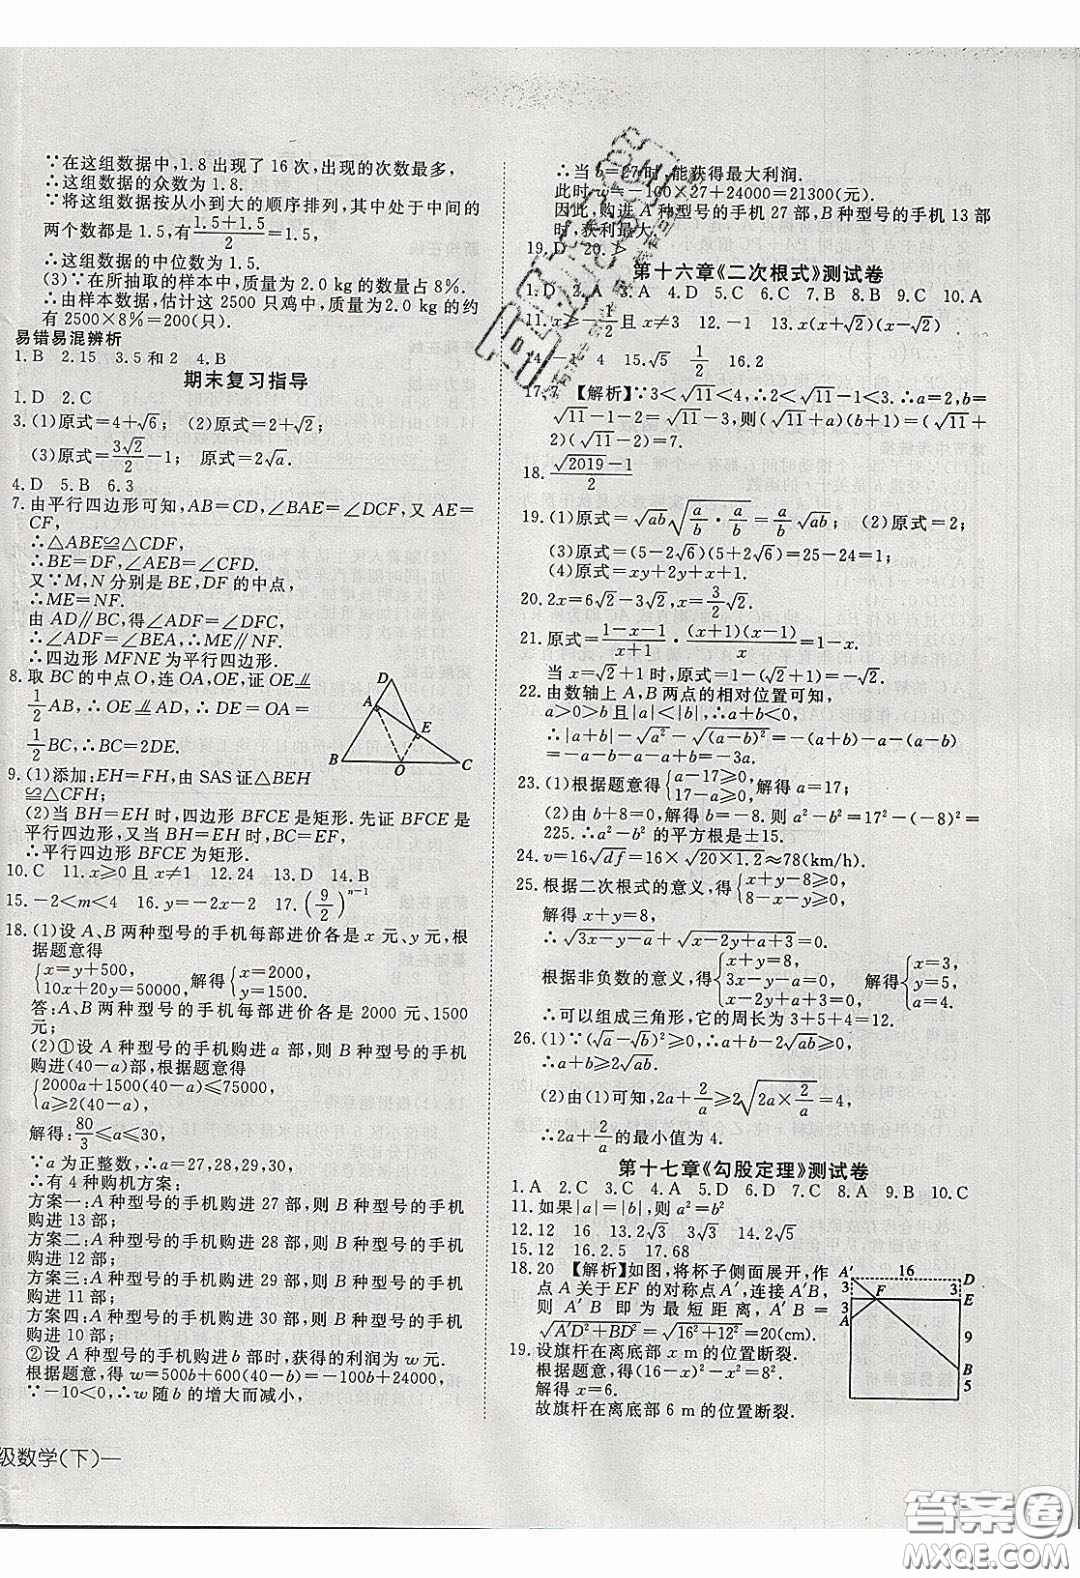 ∵在这组数据中,1.8出现了16次,出现的次数最多,
∴这组数据的众数为1.8.
∵将这组数据按从小到大的顺序排列,其中处于中间的
两个数都是1.5,有(1.5+1.5)/2=1.5,
∴这组数据的中位数为1.5.
(3)∵在所抽取的样本中,质量为2.0 kg的数量占8%.
∴由样本数据,估计这2500只鸡中,质量为2.0 kg的约
有2500×8%=200(只).
易错易混辨析
1.B 2.15 3.5和2 4.B
期末复习指导
1.D 2.C
3.(1)原式=4+√6; (2)原式=2+√2;
(3)原式=3√2/2-1; 原式=2√a.
4.D 5.B 6.3
7.由平行四边形可知,AB=CD,∠BAE=∠DCF,又AE=
CF,
∴△ABE≌△CDF,
∴BE=DF,∠AEB=∠CFD.
又∵M,N分别是BE,DF的中点,
∴ME=NF.
由AD∥BC,得∠ADF=∠DFC,
∴∠ADF=∠BEA,∴ME∥NF.
∴四边形MFNE为平行四边形.
8.取BC的中点O,连OA,OE,证OE∥=
1/2AB,∴OE∥=AD,∴DE=OA=
1/2BC,∴BC=2DE.
D
A
E
B
O
C
9.(1)添加:EH=FH,由SAS证△BEH
≌△CFH;
(2)当BH=EH时,四边形BFCE是矩形.先证BFCE是
平行四边形,又当BH=EH时,BC=EF,
∴平行四边形BFCE为矩形.
10.C 11.x≥0且x≠1 12.24 13.D 14.B
15.-2<m<4 16.y=-2x-2 17.(9/2)^(n-1)
18.(1)设A、B两种型号的手机每部进价各是x元、y元,根
据题意得
{x=y+500, 10x+20y=50000, 解得{x=2000, y=1500.
答:A、B两种型号的手机每部进价各是2000元、1500
元;
(2)①设A种型号的手机购进a部,则B种型号的手机
购进(40-a)部,根据题意得
{2000a+1500(40-a)≤75000, a≥2(40-a),
解得:80/3≤a≤30,
∵a为正整数,∴a=27,28,29,30,
∴有4种购机方案:
方案一:A种型号的手机购进27部,则B种型号的手机
购进13部;
方案二:A种型号的手机购进28部,则B种型号的手机
购进12部;
方案三:A种型号的手机购进29部,则B种型号的手机
购进11部;
方案四:A种型号的手机购进30部,则B种型号的手机
购进10部;
②设A种型号的手机购进b部时,获得的利润为w元.
根据题意,得w=500b+600(40-b)=-100b+24000,
∵-10<0,∴w随b的增大而减小,
级数学(下)—
∴当b=27时,能获得最大利润.
此时w=-100×27+24000=21300(元).
因此,购进A种型号的手机27部,B种型号的手机13部
时,获利最大.
19.D 20.>
第十六章《二次根式》测试卷
1.D 2.A 3.A 4.D 5.C 6.C 7.B 8.B 9.C 10.A
11.x≥-1/2且x≠3 12.-1 13.x(x+√2)(x-√2)
14.-1 4 15.√5 1/2 16.2
17.7 【解析】∵3<√11<4,∴2<√11-1<3.∴a=2,b=
√11-1-2=√11-3,则(√11+a)(b+1)=(√11+
2)(√11-2)=7.
18.(√2019-1)/2
19.(1)原式=√ab √(a/b·a/b)=a/b√ab; (2)原式=2;
(3)原式=(5-2√6)(5+2√6)=25-24=1;
(4)原式=xy+2y√x-x√y.
20.2x=6√2-3√2,x=3/2√2.
21.原式=(1-x-1)/(x+1)·(x+1)(x-1)/x=1-x.
当x=√2+1时,原式=1-(√2+1)=-√2.
22.由数轴上A,B两点的相对位置可知,
a>0>b且|a|<|b|,∴a+b<0,
∴|a+b|-√a²-√(-b)²=-(a+b)-a-(-b)
=-a-b-a+b=-3a.
23.(1)根据题意得{a-17≥0, 17-a≥0, 解得a=17;
(2)由b+8=0,解得b=-8.则a²-b²=17²-(-8)²=
225.∴a²-b²的平方根是±15.
24.v=16√df=16×√20×1.2≈78(km/h).
25.根据二次根式的意义,得{x-8+y≥0, 8-x-y≥0,
解得x+y=8,
∴√3x-y-a+√x-2y+a+3=0,
根据非负数的意义,得{x+y=8, 3x-y-a=0, x-2y+a+3=0, 解得{x=3, y=5, a=4.
∴可以组成三角形,它的周长为3+5+4=12.
26.(1)∵(√a-√b)²≥0,∴a+b-2√ab≥0,
∴a+b≥2√ab.
(2)由(1)可知,2a+2/a≥2√(2a×2/a)=4,
∴2a+2/a的最小值为4.
第十七章《勾股定理》测试卷
1.A 2.C 3.C 4.A 5.D 6.D 7.C 8.A 9.B 10.C
11.如果|a|=|b|,则a²=b²
12.12 16 13.2√3 3√3 14.2√5
15.12 16.2.5 17.68
18.20 【解析】如图,将杯子侧面展开,作
点A关于EF的对称点A′,连接A′B,
则A′B即为最短距离,A′B=
√A′D²+BD²=√16²+12²=20(cm).
A′ 16 D
3 F 3 E
A
9
B
5
19.设旗杆在离底部x m的位置断裂.
根据题意,得(16-x)²-x²=8².
解得x=6.
故旗杆在离底部6 m的位置断裂.
答案圈
MXQE.COM